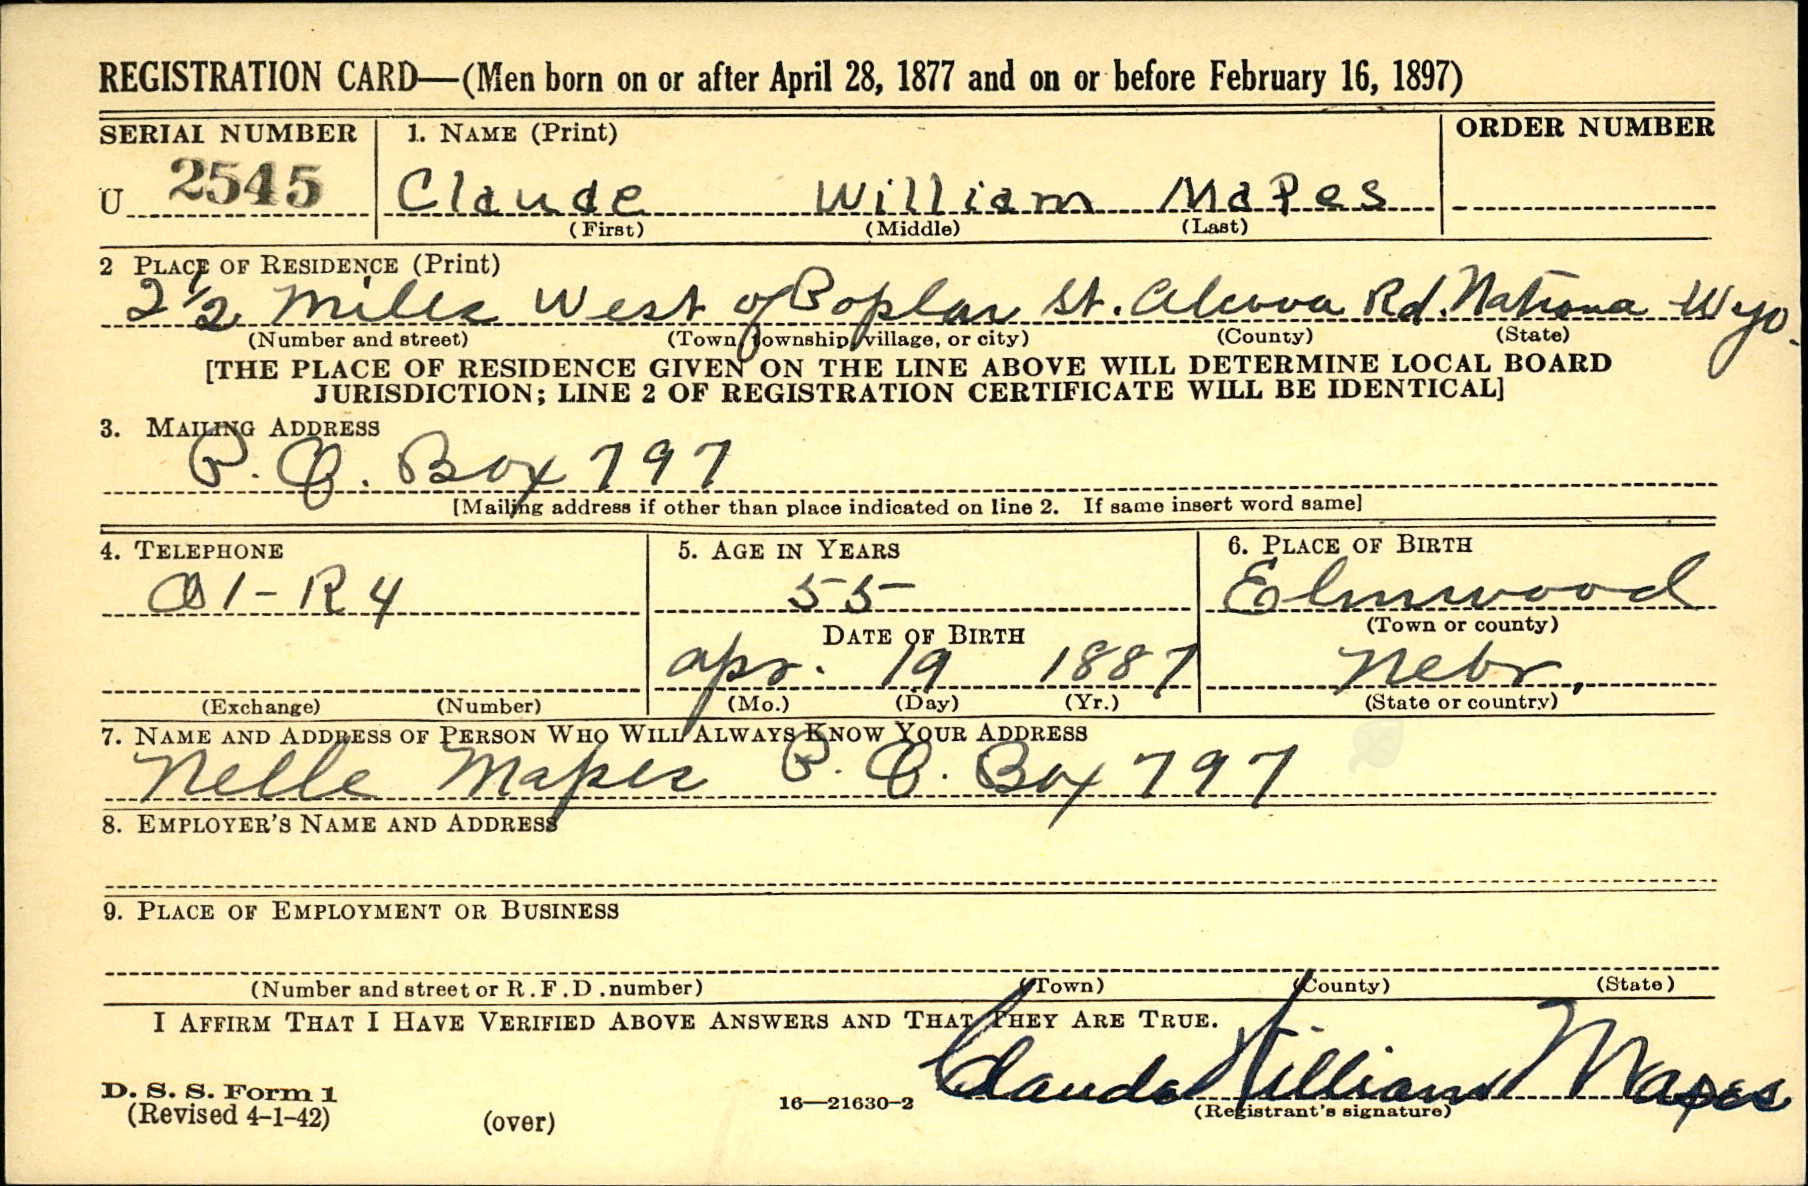 REGISTRATION CARD—(Men born on or after April 28, 1877 and on or before February 16, 1897)
SERIAL NUMBER
1. NAME (Print)
ORDER NUMBER
U 2545
Claude William Mapes
(First) (Middle) (Last)
2 PLACE OF RESIDENCE (Print)
2 1/2 Miles West of Poplar St. Alcova Rd. Natrona Wyo.
(Number and street) (Town, township, village, or city) (County) (State)
[THE PLACE OF RESIDENCE GIVEN ON THE LINE ABOVE WILL DETERMINE LOCAL BOARD
JURISDICTION; LINE 2 OF REGISTRATION CERTIFICATE WILL BE IDENTICAL]
3. MAILING ADDRESS
P. O. Box 797
[Mailing address if other than place indicated on line 2. If same insert word same]
4. TELEPHONE
5. AGE IN YEARS
6. PLACE OF BIRTH
1-R4
55
Elmwood
(Town or county)
DATE OF BIRTH
Apr. 19 1887
Nebr.
(Exchange) (Number)
(Mo.) (Day) (Yr.)
(State or country)
7. NAME AND ADDRESS OF PERSON WHO WILL ALWAYS KNOW YOUR ADDRESS
Nelle Mapes P. O. Box 797
8. EMPLOYER'S NAME AND ADDRESS
9. PLACE OF EMPLOYMENT OR BUSINESS
(Number and street or R.F.D. number) (Town) (County) (State)
I AFFIRM THAT I HAVE VERIFIED ABOVE ANSWERS AND THAT THEY ARE TRUE.
Claude William Mapes
D. S. S. Form 1
(Revised 4-1-42)
(over)
16—21630-2
(Registrant's signature)